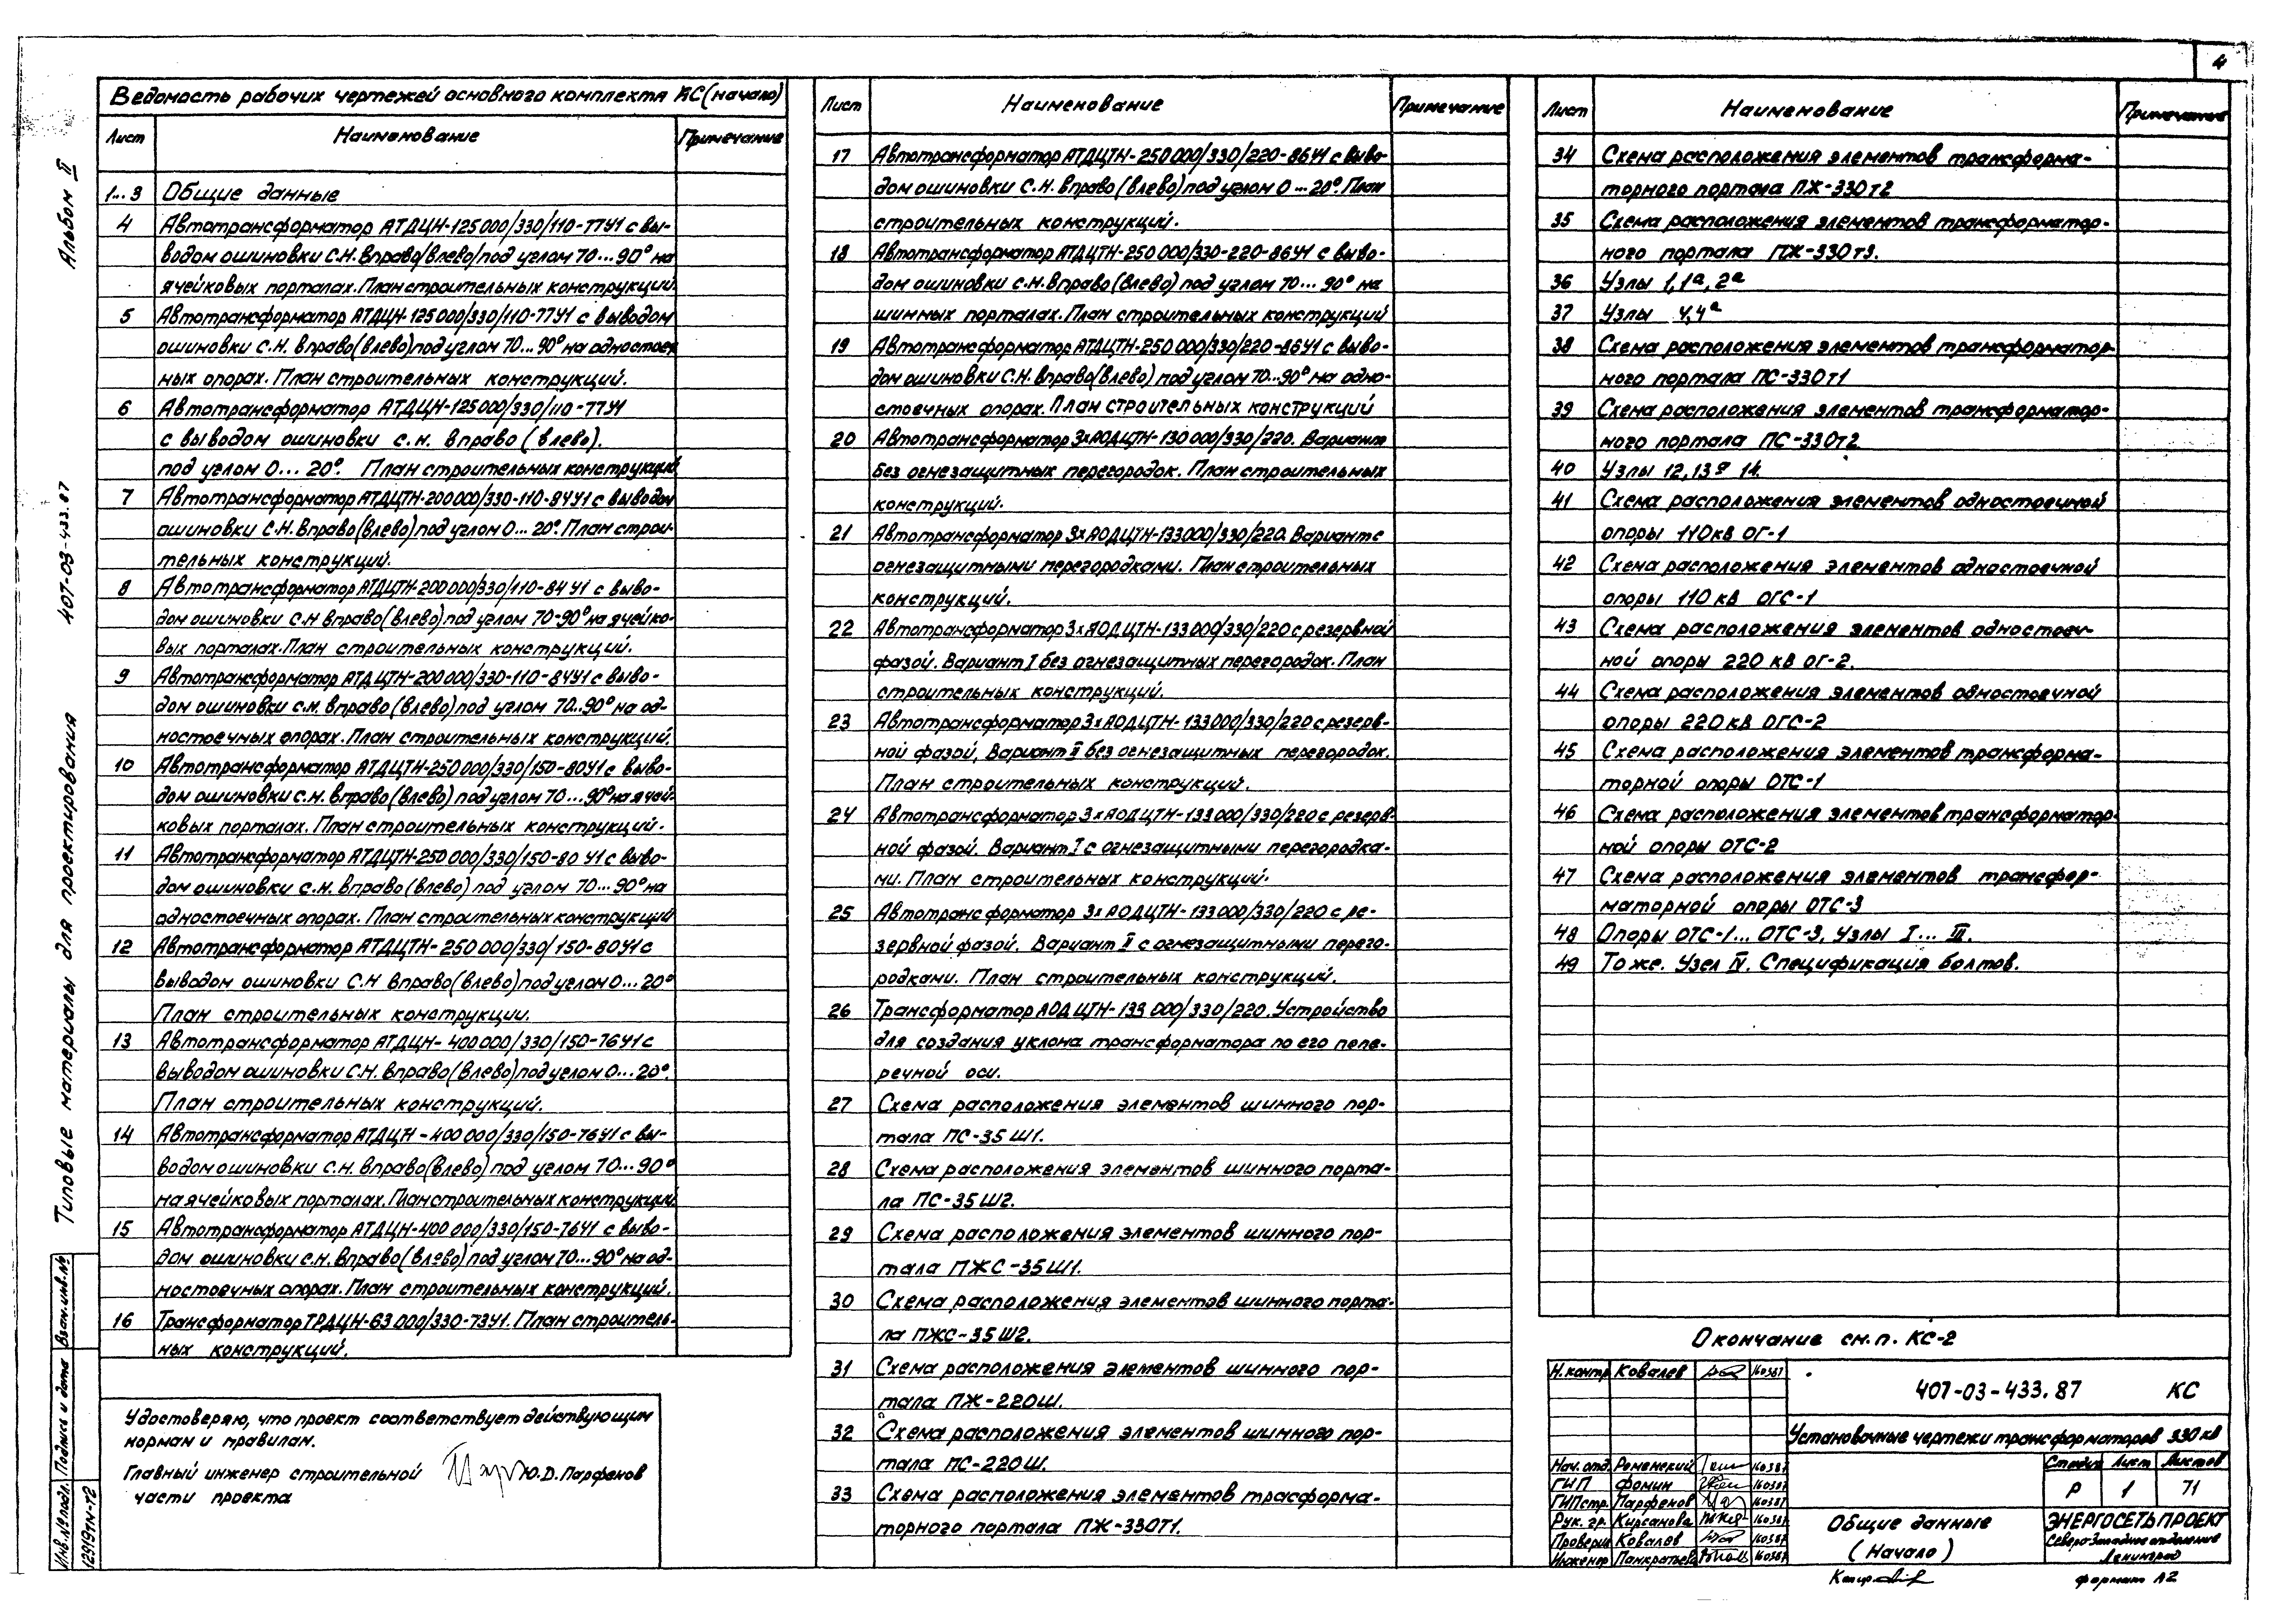 4
Альбом II
407-03-433.87
Типовые материалы для проектирования
Взам.инв.№
Подпись и дата
Инв.№подл.
12919тм-т2
Ведомость рабочих чертежей основного комплекта КС(начало)
Лист Наименование Примечание
1...3 Общие данные
4 Автотрансформатор АТДЦН-125000/330/110-77У1 с вы-
водом ошиновки С.Н. вправо(влево)под углом 70...90° на
ячейковых порталах.План строительных конструкций
5 Автотрансформатор АТДЦН-125000/330/110-77У1 с выводом
ошиновки С.Н. вправо(влево)под углом 70...90° на одностоеч
ных опорах. План строительных конструкций.
6 Автотрансформатор АТДЦН-125000/330/110-77У1
с выводом ошиновки с.н. вправо (влево).
под углом 0...20°. План строительных конструкций
7 Автотрансформатор АТДЦТН-200000/330-110-84У1 с выводом
ошиновки С.Н. вправо(влево)под углом 0...20°. План строи-
тельных конструкций.
8 Автотрансформатор АТДЦТН-200000/330/110-84У1 с выво-
дом ошиновки С.Н вправо(влево)под углом 70-90° на ячейко-
вых порталах.План строительных конструкций.
9 Автотрансформатор АТДЦТН-200000/330-110-84У1 с выво-
дом ошиновки с.н. вправо(влево)под углом 70..90° на од-
ностоечных опорах. План строительных конструкций.
10 Автотрансформатор АТДЦТН-250000/330/150-80У1 с выво-
дом ошиновки с.н. вправо(влево) под углом 70...90° на ячей-
ковых порталах. План строительных конструкций.
11 Автотрансформатор АТДЦТН-250000/330/150-80У1 с выво-
дом ошиновки с.н. вправо(влево) под углом 70...90° на
одностоечных опорах. План строительных конструкций
12 Автотрансформатор АТДЦТН-250000/330/150-80У1 с
выводом ошиновки С.Н вправо(влево)под углом 0...20°
План строительных конструкций.
13 Автотрансформатор АТДЦН-400000/330/150-76У1 с
выводом ошиновки С.Н. вправо(влево)под углом 0...20°.
План строительных конструкций.
14 Автотрансформатор АТДЦН-400000/330/150-76У1 с вы-
водом ошиновки с.н. вправо(влево) под углом 70...90°
на ячейковых порталах.План строительных конструкций.
15 Автотрансформатор АТДЦН-400000/330/150-76У1 с выво-
дом ошиновки с.н. вправо(влево)под углом 70...90° на од-
ностоечных опорах. План строительных конструкций.
16 Трансформатор ТРДЦН-63000/330-73У1. План строитель-
ных конструкций.
Удостоверяю, что проект соответствует действующим
нормам и правилам.
Главный инженер строительной Ю.Д.Парфенов
части проекта
Лист Наименование Примечание
17 Автотрансформатор АТДЦТН-250000/330/220-86У1 с выво-
дом ошиновки С.Н. вправо(влево)под углом 0...20°. План
строительных конструкций.
18 Автотрансформатор АТДЦТН-250000/330-220-86У1 с выво-
дом ошиновки с.н. вправо(влево)под углом 70...90° на
шинных порталах. План строительных конструкций
19 Автотрансформатор АТДЦТН-250000/330/220-86У1 с выво-
дом ошиновки С.Н. вправо(влево) под углом 70...90° на одно-
стоечных опорах. План строительных конструкций
20 Автотрансформатор 3хАОДЦТН-130000/330/220. Вариант
без огнезащитных перегородок. План строительных
конструкций.
21 Автотрансформатор 3хАОДЦТН-133000/330/220. Вариант с
огнезащитными перегородками. План строительных
конструкций.
22 Автотрансформатор 3хАОДЦТН-133000/330/220 с резервной
фазой. Вариант I без огнезащитных перегородок. План
строительных конструкций.
23 Автотрансформатор 3хАОДЦТН-133000/330/220 с резерв-
ной фазой, Вариант II без огнезащитных перегородок.
План строительных конструкций.
24 Автотрансформатор 3хАОДЦТН-133000/330/220 с резерв-
ной фазой. Вариант I с огнезащитными перегородка-
ми. План строительных конструкций.
25 Автотрансформатор 3хАОДЦТН-133000/330/220 с ре-
зервной фазой. Вариант II с огнезащитными перего-
родками. План строительных конструкций.
26 Трансформатор АОДЦТН-133000/330/220. Устройство
для создания уклона трансформатора по его попе-
речной оси.
27 Схема расположения элементов шинного пор-
тала ПС-35Ш1.
28 Схема расположения элементов шинного порта-
ла ПС-35Ш2.
29 Схема расположения элементов шинного пор-
тала ПЖС-35Ш1.
30 Схема расположения элементов шинного порта-
ла ПЖС-35Ш2.
31 Схема расположения элементов шинного пор-
тала ПЖ-220Ш.
32 Схема расположения элементов шинного пор-
тала ПС-220Ш.
33 Схема расположения элементов трасформа-
торного портала ПЖ-330Т1.
Лист Наименование Примечание
34 Схема расположения элементов трансформа-
торного портала ПЖ-330т2
35 Схема расположения элементов трансформатор-
ного портала ПЖ-330т3.
36 Узлы 1,1а,2а
37 Узлы 4,4а
38 Схема расположения элементов трансформатор-
ного портала ПС-330т1
39 Схема расположения элементов трансформатор-
ного портала ПС-330т2
40 Узлы 12,13 14.
41 Схема расположения элементов одностоечной
опоры 110кв ОГ-1
42 Схема расположения элементов одностоечной
опоры 110 кв ОГС-1
43 Схема расположения элементов одностоеч-
ной опоры 220 кв ОГ-2.
44 Схема расположения элементов одностоечной
опоры 220кв ОГС-2
45 Схема расположения элементов трансформа-
торной опоры ОТС-1
46 Схема расположения элементов трансформатор-
ной опоры ОТС-2
47 Схема расположения элементов трансфор-
маторной опоры ОТС-3
48 Опоры ОТС-1... ОТС-3. Узлы I... III.
49 То же. Узел IV. Спецификация болтов.
Окончание см.п. КС-2
Н.контр Ковалев 160387
407-03-433.87 КС
Установочные чертежи трансформаторов 330 кв
Нач.отд. Роменский 160387
ГИП Фомин 160387
ГИПстр. Парфенов 160387
Рук. гр. Кирсанова 160387
Проверил Ковалов 160387
Инженер Панкратьева 160387
Стадия Лист Листов
Р 1 71
Общие данные
(Начало)
ЭНЕРГОСЕТЬПРОЕКТ
Северо-Западное отделение
Ленинград
Копир.
формат А2